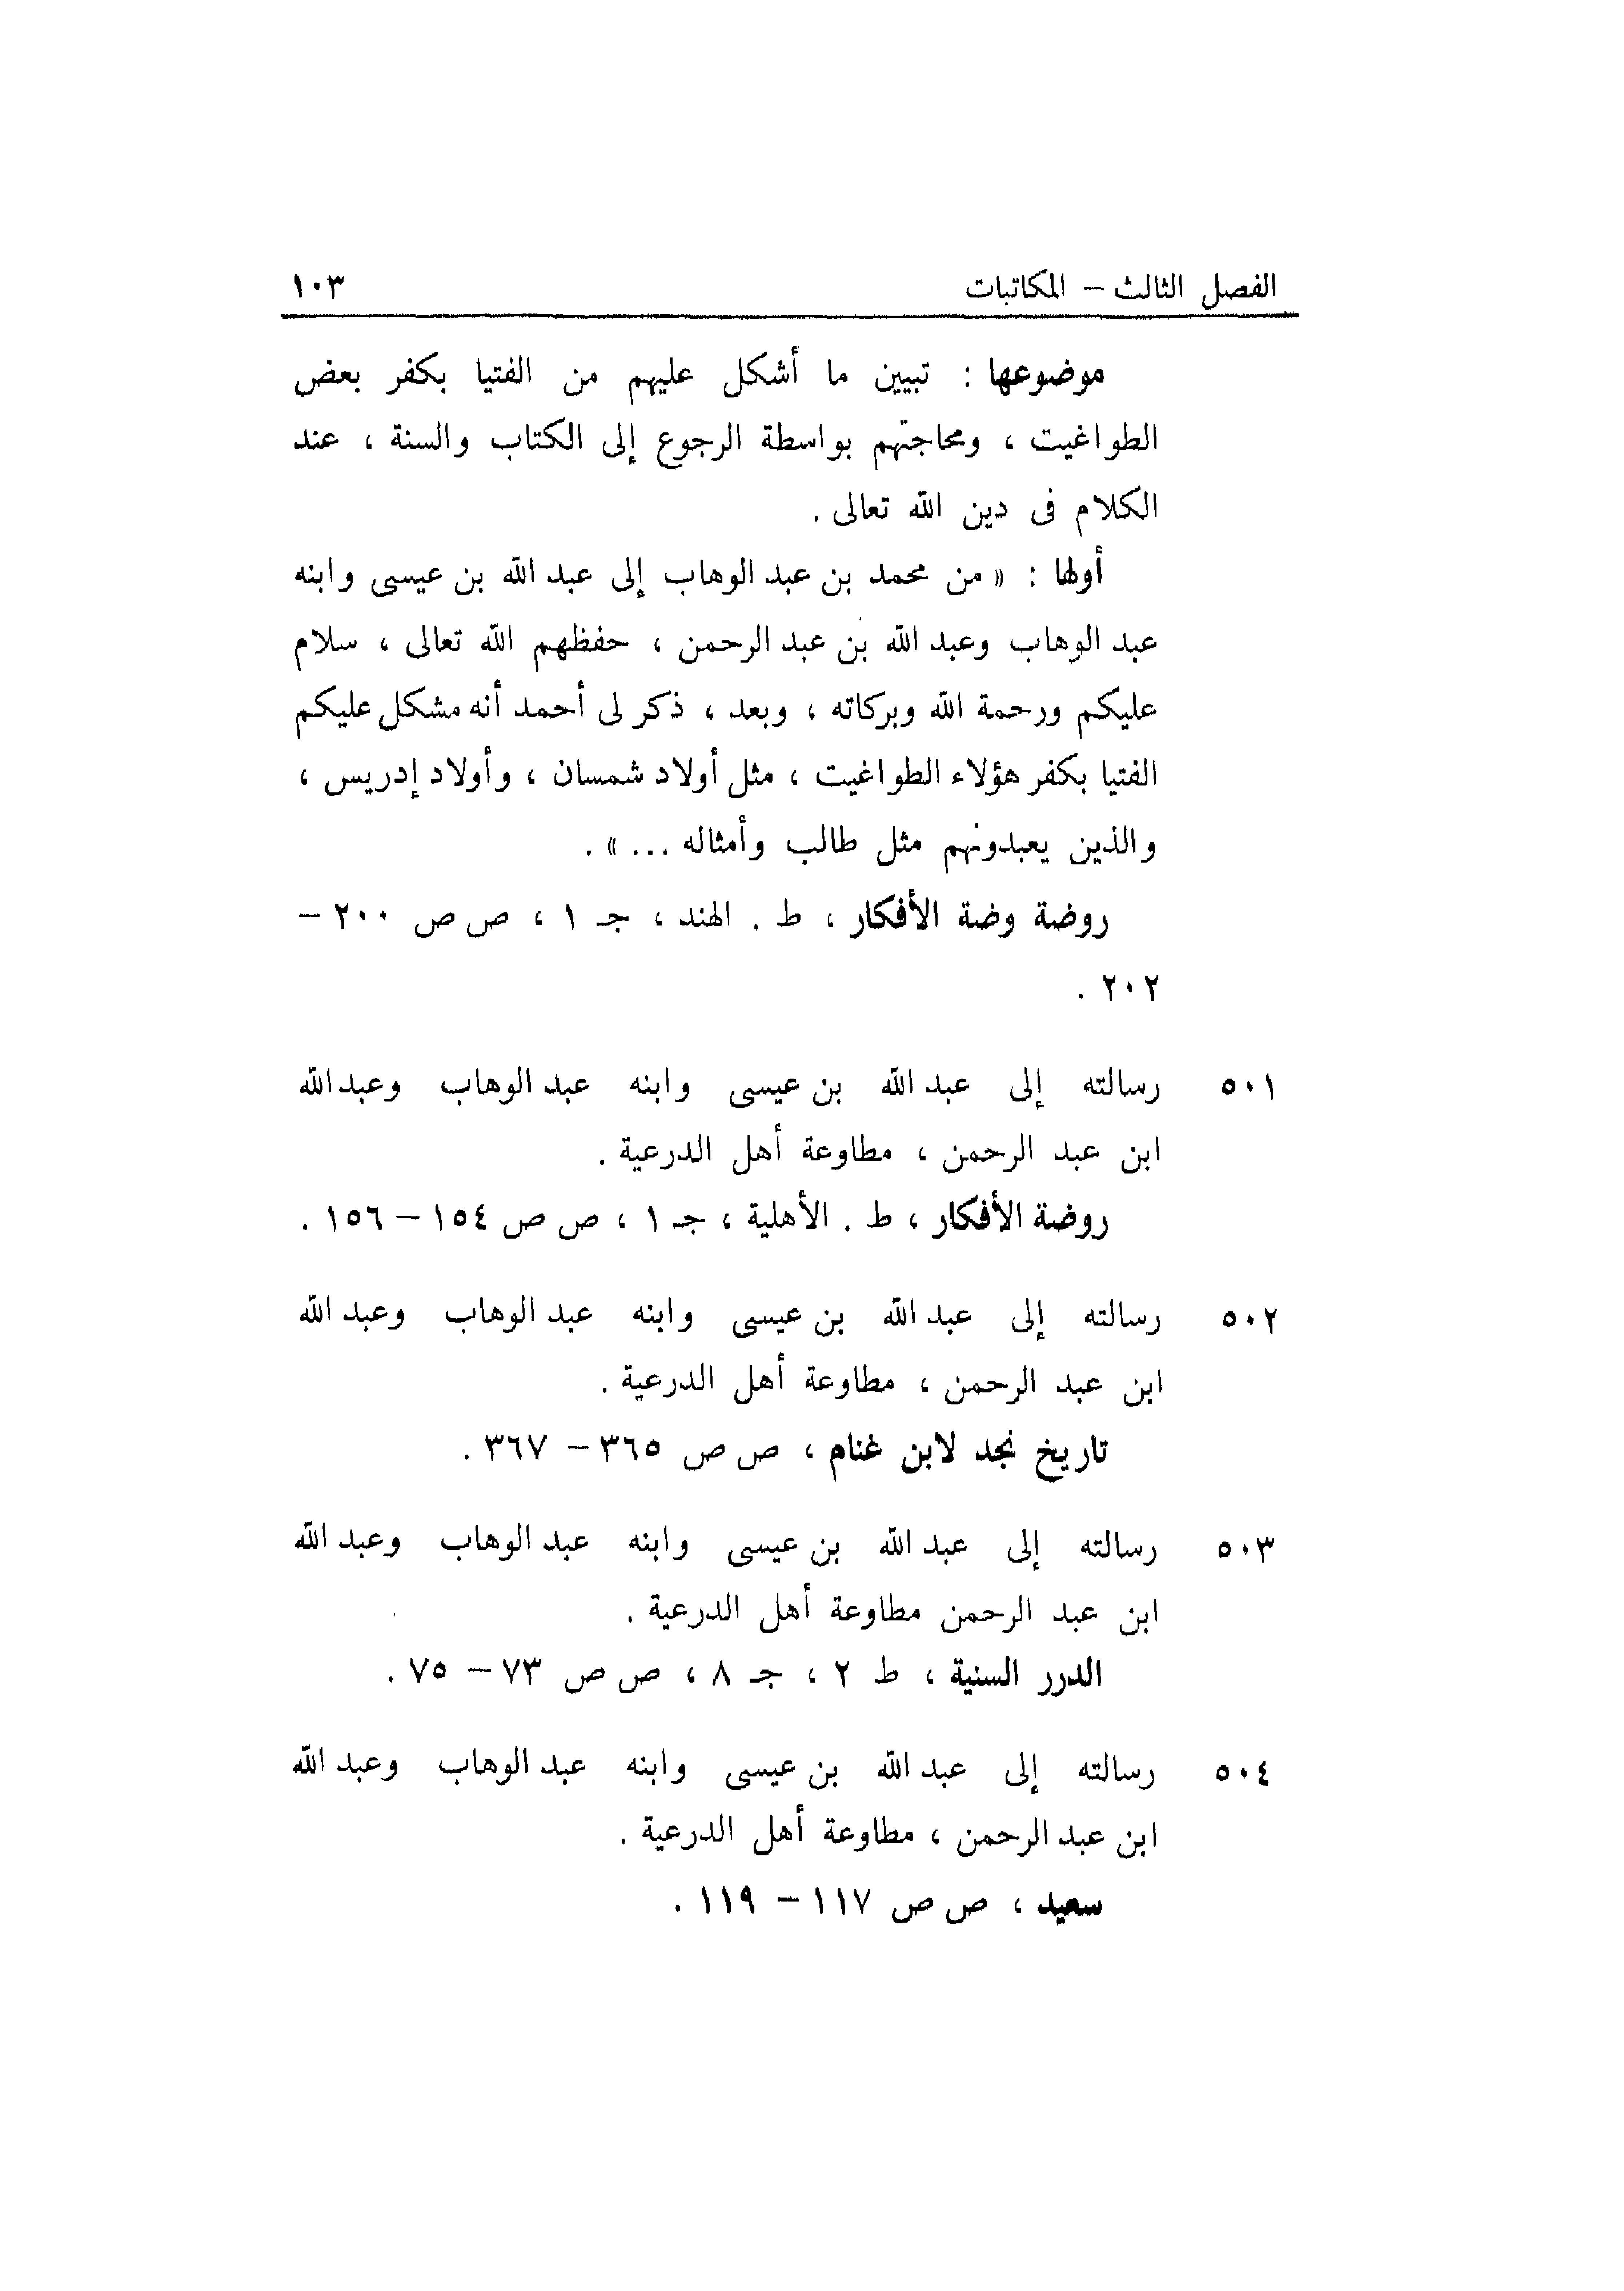 الفصل الثالث – المكاتبات ١٠٣
موضوعها : تبيين ما أشكل عليهم من الفتيا بكفر بعض
الطواغيت ، ومحاجتهم بواسطة الرجوع إلى الكتاب والسنة ، عند
الكلام فى دين الله تعالى .
أولها : « من محمد بن عبد الوهاب إلى عبد الله بن عيسى وابنه
عبد الوهاب وعبد الله بن عبد الرحمن ، حفظهم الله تعالى ، سلام
عليكم ورحمة الله وبركاته ، وبعد ، ذكر لى أحمد أنه مشكل عليكم
الفتيا بكفر هؤلاء الطواغيت ، مثل أولاد شمسان ، وأولاد إدريس ،
والذين يعبدونهم مثل طالب وأمثاله ... » .
روضة وضة الأفكار ، ط . الهند ، جـ ١ ، ص ص ٢٠٠ –
٢٠٢ .
٥٠١ رسالته إلى عبد الله بن عيسى وابنه عبد الوهاب وعبد الله
ابن عبد الرحمن ، مطاوعة أهل الدرعية .
روضة الأفكار ، ط . الأهلية ، جـ ١ ، ص ص ١٥٤ – ١٥٦ .
٥٠٢ رسالته إلى عبد الله بن عيسى وابنه عبد الوهاب وعبد الله
ابن عبد الرحمن ، مطاوعة أهل الدرعية .
تاريخ نجد لابن غنام ، ص ص ٣٦٥ – ٣٦٧ .
٥٠٣ رسالته إلى عبد الله بن عيسى وابنه عبد الوهاب وعبد الله
ابن عبد الرحمن مطاوعة أهل الدرعية .
الدرر السنية ، ط ٢ ، جـ ٨ ، ص ص ٧٣ – ٧٥ .
٥٠٤ رسالته إلى عبد الله بن عيسى وابنه عبد الوهاب وعبد الله
ابن عبد الرحمن ، مطاوعة أهل الدرعية .
سعيد ، ص ص ١١٧ – ١١٩ .